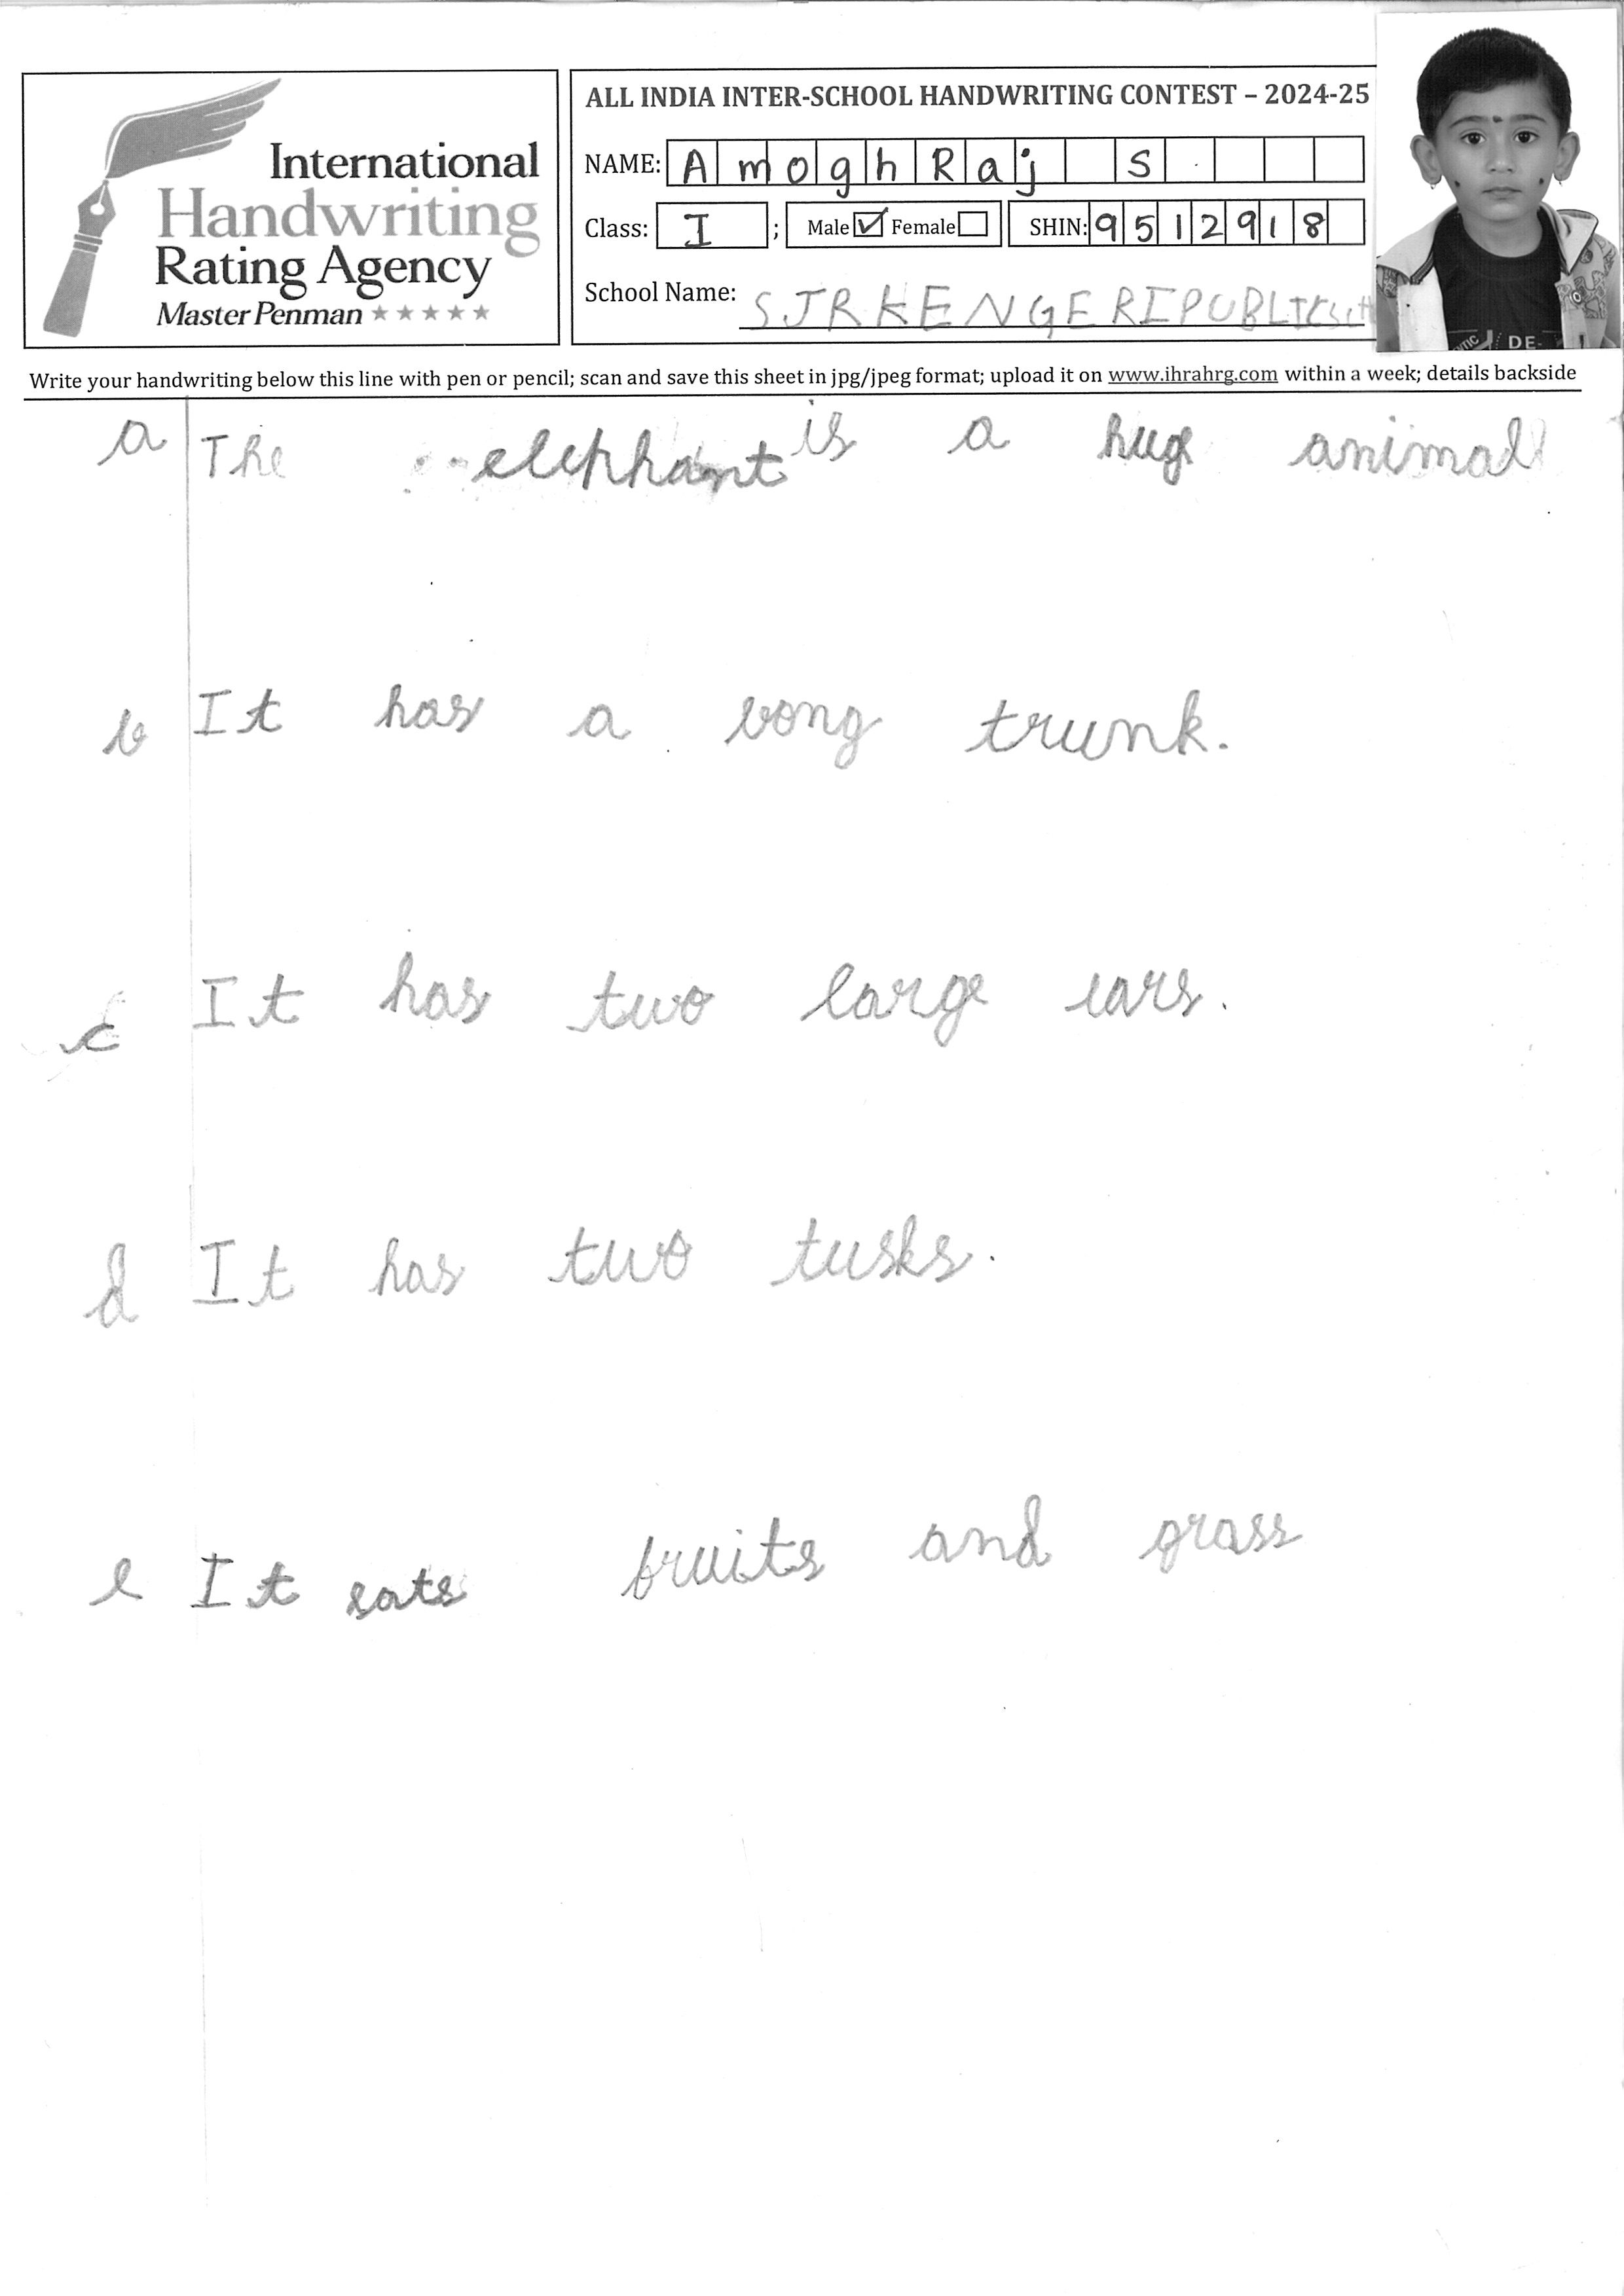 International
Handwriting
Rating Agency
Master Penman ★★★★★
ALL INDIA INTER-SCHOOL HANDWRITING CONTEST – 2024-25
NAME: Amogh Raj S
Class: I ; Male ☑ Female ☐ SHIN: 9512918
School Name: SJRKENGERIPUBLICSCH
DE-
Write your handwriting below this line with pen or pencil; scan and save this sheet in jpg/jpeg format; upload it on www.ihrahrg.com within a week; details backside
a The elephant is a huge animal
b It has a long trunk.
c It has two large ears.
d It has two tusks.
e It eats fruits and grass